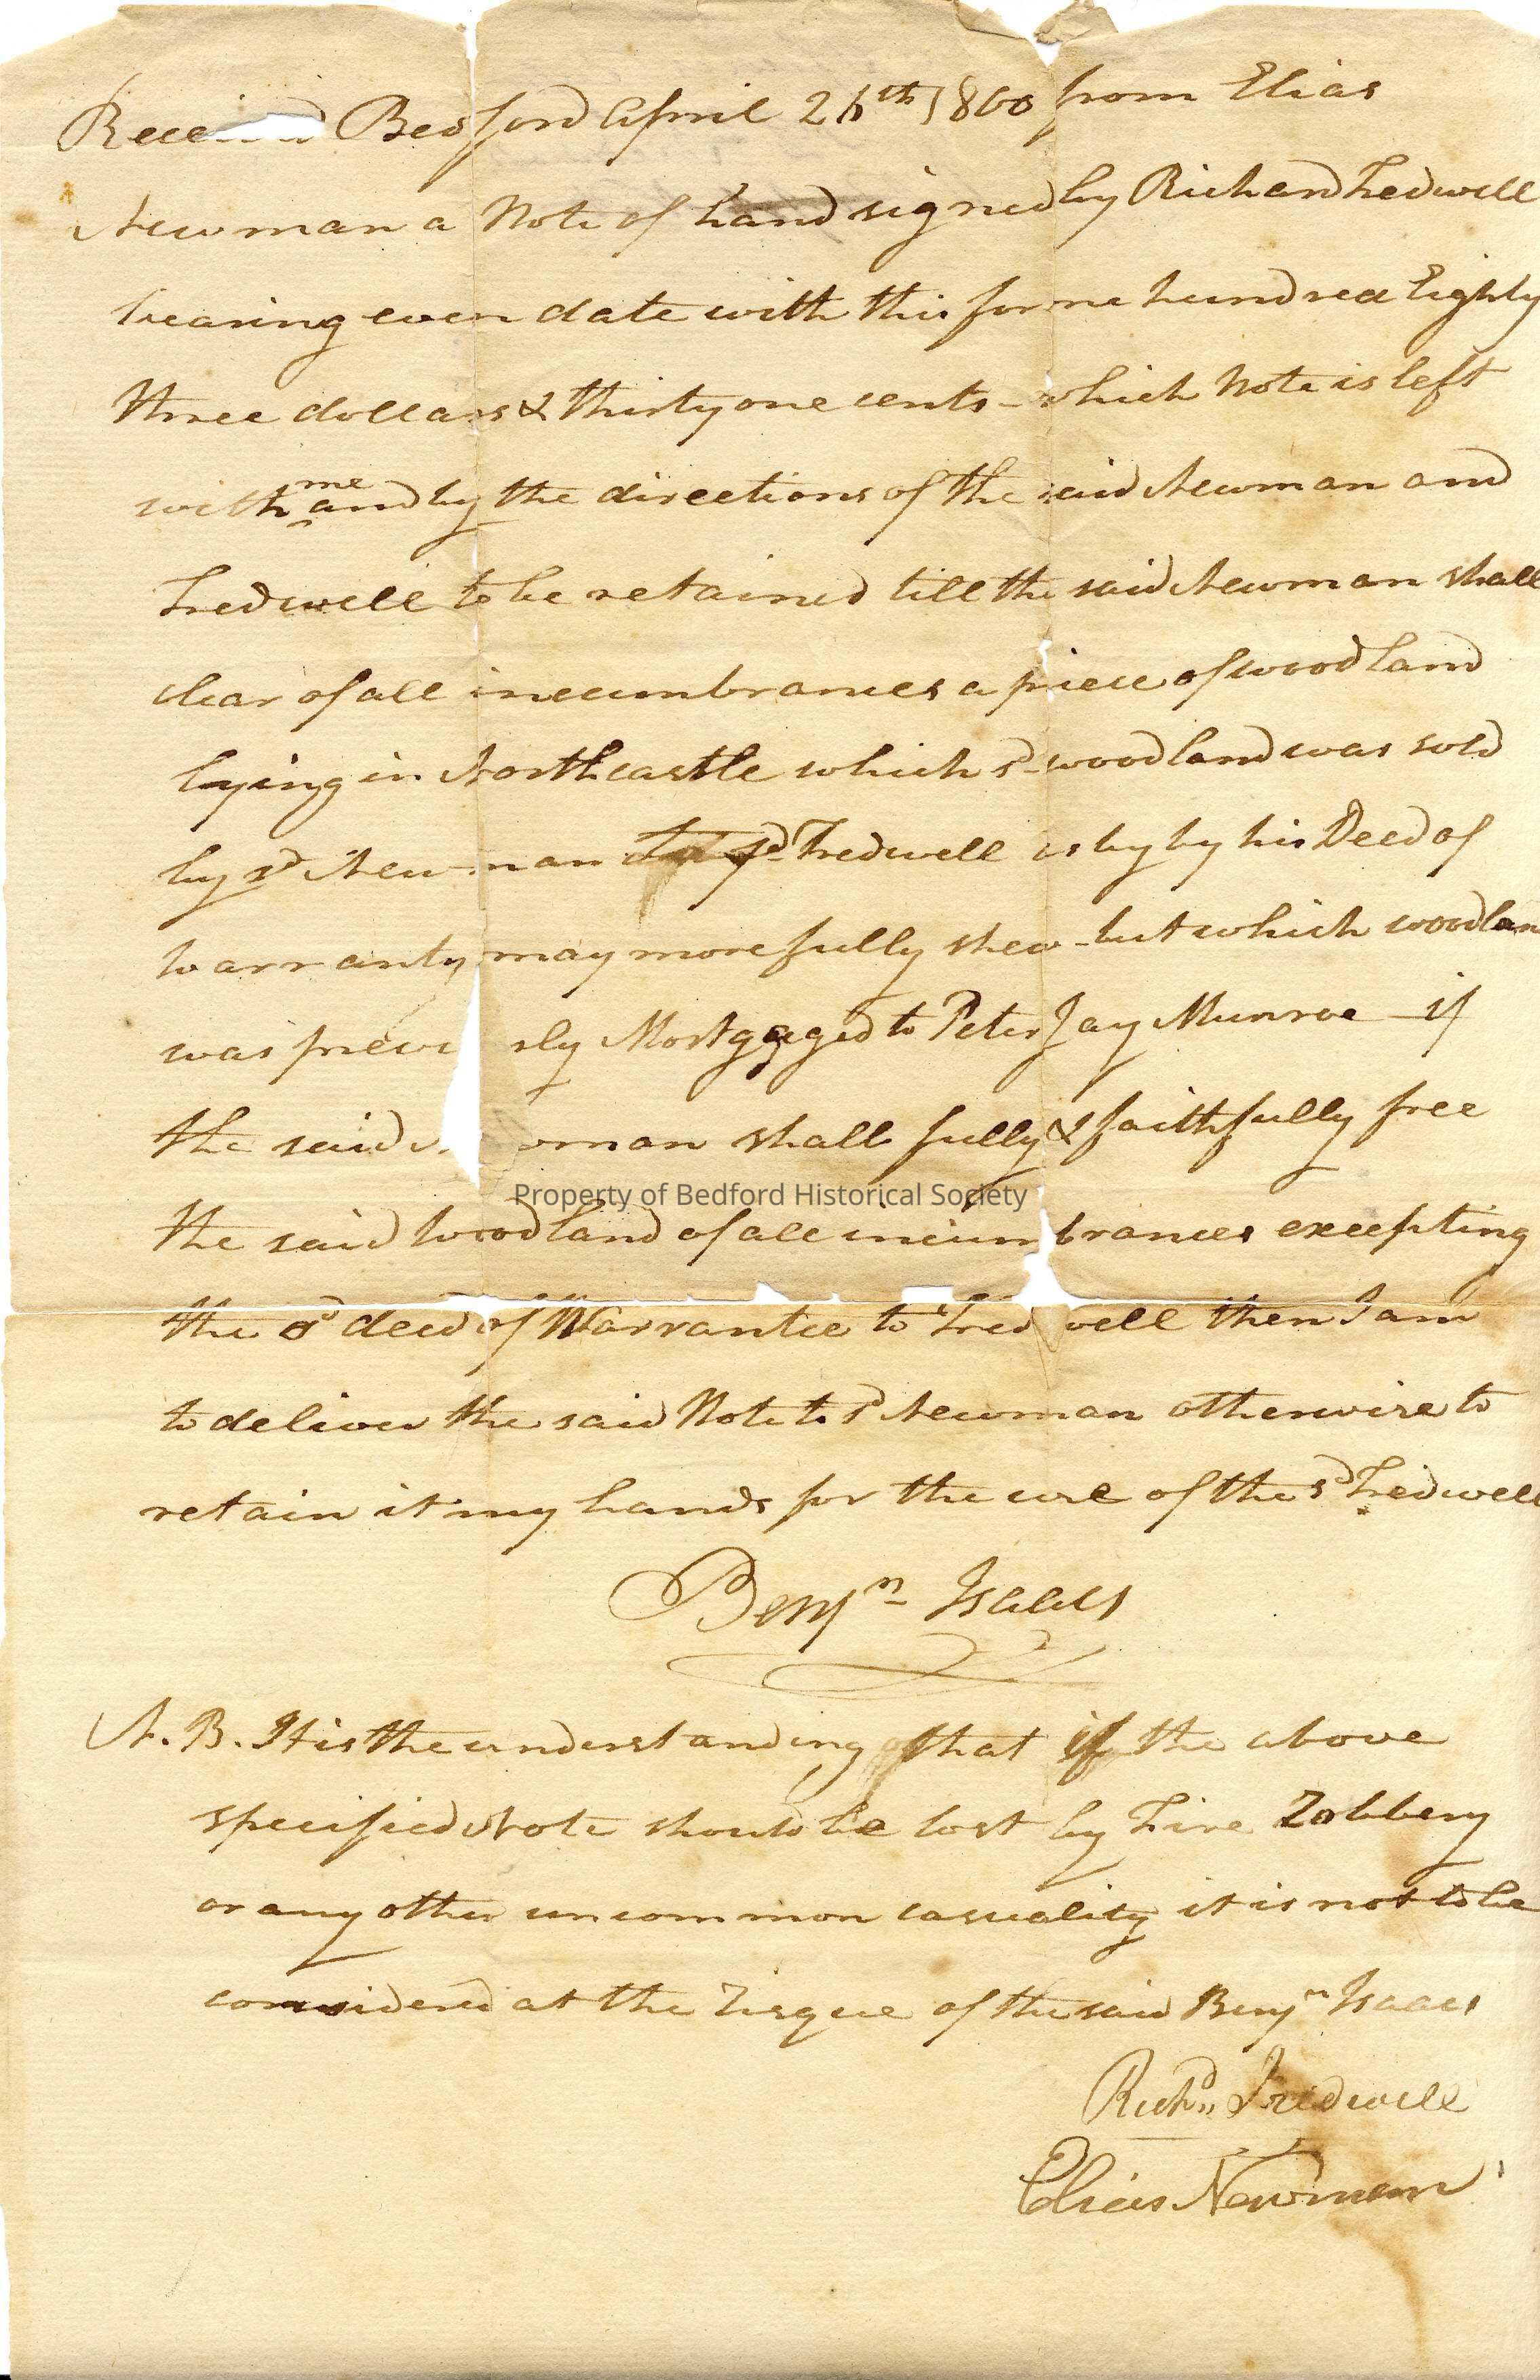 Received Bedford April 26th 1800 from Elias
Newman a Note of hand signed by Richard Tredwell
bearing even date with this for one hundred Eighty
three dollars & thirty one cents - which Note is left
with me and by the directions of the said Newman and
Tredwell to be retained till the said Newman shall
clear of all incumbrances a piece of wood land
lying in Northcastle which sd wood land was sold
by sd Newman to sd Tredwell as by by his Deed of
warranty may more fully shew - but which woodlan
was previ sly Mortgaged to Peter Jay Munroe - if
the said N wman shall fully & faithfully free
the said woodland of all incumbrances excepting
the sd deed of Warrantee to Tredwell then I am
to deliver the said Note to sd Newman otherwise to
retain it my hands for the use of the sd Tredwell
Benjn Isaacs
N.B. It is the understanding that if the above
specified Note should be lost by Fire Robbery
or any other uncommon casuality it is not to be
considered at the Risque of the said Benjn Isaacs
Richd Tredwell
Elias Newman
Property of Bedford Historical Society